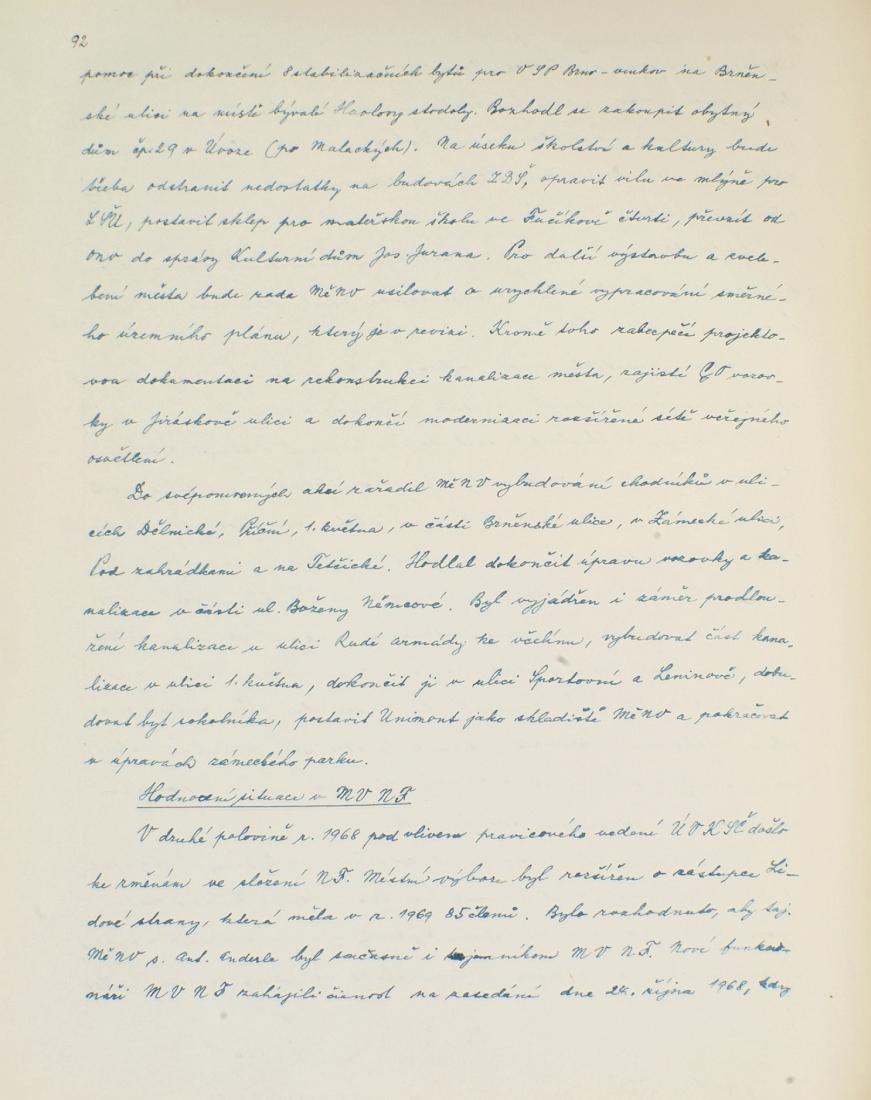 92
pomoc při dokončení 8 stabilizačních bytů pro OSP Brno-venkov na Brněn-
ské ulici na místě bývalé stodoly. Rozhodl se zakoupit obytný
dům čp. 29 v Úvoze (po Malackých). Na úseku školství a kultury bude
třeba odstranit nedostatky na budovách ZDŠ, opravit vilu ve mlýně pro
LŠU, postavit sklep pro mateřskou školu ve Fučíkově čtvrti, převzít od
ONV do správy Kulturní dům Jos. Jurana. Pro další výstavbu a zvele-
bení města bude rada MěNV usilovat o urychlené vypracování směrné-
ho územního plánu, který je v revizi. Kromě toho zabezpečí projekto-
vou dokumentaci na rekonstrukci kanalizace města, zajistí GO vozov-
ky v Jiráskově ulici a dokončí modernizaci rozšířené sítě veřejného
osvětlení.
Do svépomocných akcí zařadil MěNV vybudování chodníků v uli-
cích Dělnické, Příční, 1. května, v části Brněnské ulice, v Zámecké ulici,
Pod zahrádkami a na Tetčické. Hodlal dokončit úpravu vozovky a ka-
nalizace v části ul. Boženy Němcové. Byl vyjádřen i záměr prodlou-
žení kanalizace v ulici Rudé armády ke včelínu, vybudovat část kana-
lizace v ulici 1. května, dokončit ji v ulici Sportovní a Leninově, dobu-
dovat byt sokolníka, postavit Unimont jako skladiště MěNV a pokračovat
v úpravách zámeckého parku.
Hodnocení situace v MV NF
V druhé polovině r. 1968 pod vlivem pravicového vedení ÚV KSČ došlo
ke změnám ve složení NF. Místní výbor byl rozšířen o zástupce Li-
dové strany, která měla v r. 1969 85 členů. Bylo rozhodnuto, aby taj.
MěNV s. Ant. Anderla byl současně i tajemníkem MV NF. Noví funkcio-
náři MV NF zahájili činnost na zasedání dne 24. října 1968, kdy